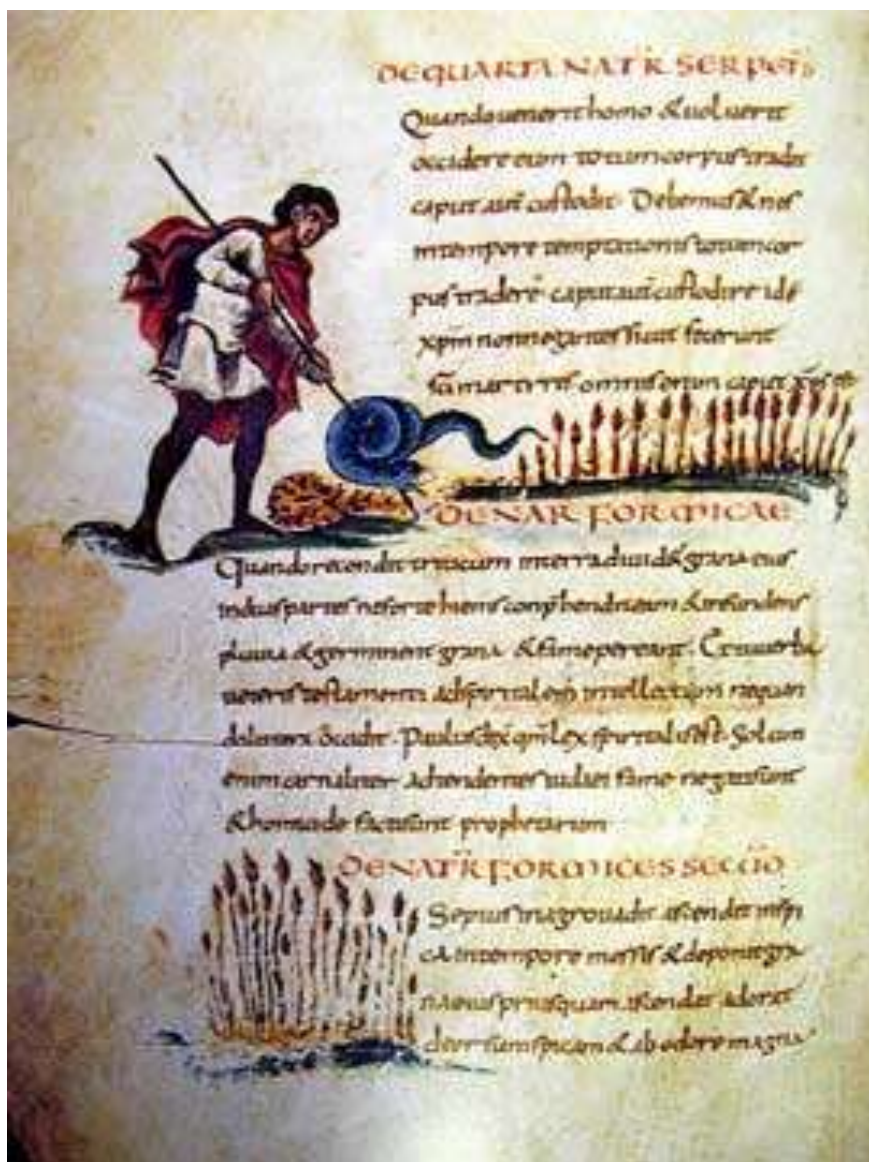 DE QUARTA NATR SERPETS
Quando uenerit homo & uoluerit
occidere eum totum corpus tradit
caput aut custodit. Debemus & nos
in tempore temptationis totum cor
pus tradere caput aut custodire ide
xpm non negantes sicut fecerunt
sci martiris omnis enim caput xps est
DE NAR FORMICAE
Quando recondit triticum in terra diuid& grana eius
in duas partes ne forte hiems conphendat eum & infundens
pluuia & germinent grana & fame pereant. Et tu uerba
ueteris testamenti ad spiritalem intellectum nequan
do littera occidit. Paulus dix qm lex spiritalis est. Solum
enim carnaliter adtendentes iudaei fame negati sunt
& homicide facti sunt prophetarum
DE NATR FORMICES SECUD
Sepius in agro uadit ascendet in spi
ca in tempore messis & deponit gra
na eius priusquam ascendet adorat
deorsum spicam & ab odore magna